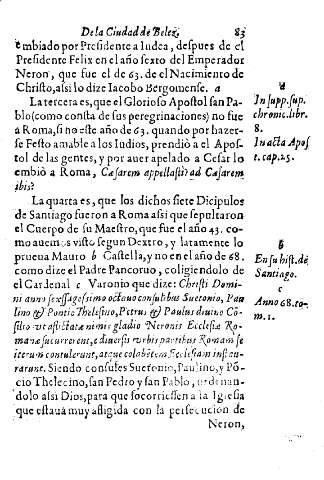 De la Ciudad de Belez. 83
embiado por Presidente a Iudea, despues de el
Presidente Felix en el año sexto del Emperador
Neron, que fue el de 63. de el Nacimiento de
Christo, assi lo dize Iacobo Bergomense. a
La tercera es, que el Glorioso Apostol san Pa-
blo (como consta de sus peregrinaciones) no fue
a Roma, si no este año de 63. quando por hazer-
se Festo amable a los Iudios, prendiò a el Apos-
tol de las gentes, y por auer apelado a Cesar lo
embiò a Roma, Cæsarem appellasti? ad Cæsarem
ibis?
La quarta es, que los dichos siete Dicipulos
de Santiago fueron a Roma assi que sepultaron
el Cuerpo de su Maestro, que fue el año 43. co-
mo auemos visto segun Dextro, y latamente lo
prueua Mauro b Castella, y no en el año de 68.
como dize el Padre Pancoruo, coligiendolo de
el Cardenal c Varonio que dize: Christi Domi-
ni anno sexsagessimo octauo consulibus Suetonio, Pau
lino & Pontio Thelesino, Petrus & Paulus diuino Cō-
silio
gladio Neronis Ecclesiæ Ro-
manæ sucurrerent, è diuersis urbis partibus Romam se
iterum contulerunt, atque colabētem Ecclesiam instau-
rarunt. Siendo consules Suetonio, Paulino, y Po-
cio Thelecino, san Pedro y san Pablo, ordenan-
dolo assi Dios, para que socorriessen a la Iglesia
que estaua muy afligida con la persecucion de
Neron,
a
In supp. sup.
chronic. libr.
8.
In acta Apos
t. cap. 25.
b
En su hist. de
Santiago.
c
Anno 68. to-
m. 1.